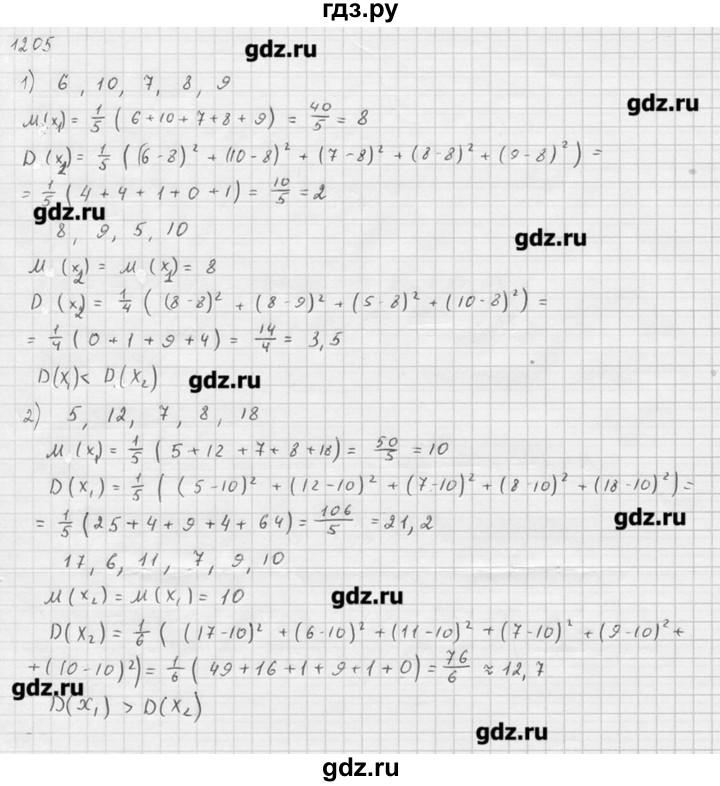 гдз.ру
1205
gdz.ru
1) 6, 10, 7, 8, 9
gdz.ru
M(x₁) = 1/5 (6+10+7+8+9) = 40/5 = 8
D(x₁) = 1/5 ((6-8)² + (10-8)² + (7-8)² + (8-8)² + (9-8)²) =
= 1/5 (4+4+1+0+1) = 10/5 = 2
gdz.ru
8, 9, 5, 10
gdz.ru
M(x₂) = M(x₁) = 8
D(x₂) = 1/4 ((8-8)² + (8-9)² + (5-8)² + (10-8)²) =
= 1/4 (0+1+9+4) = 14/4 = 3,5
D(x₁) < D(x₂)
gdz.ru
2) 5, 12, 7, 8, 18
M(x₁) = 1/5 (5+12+7+8+18) = 50/5 = 10
D(x₁) = 1/5 ((5-10)² + (12-10)² + (7-10)² + (8-10)² + (18-10)²) =
= 1/5 (25+4+9+4+64) = 106/5 = 21,2
gdz.ru
17, 6, 11, 7, 9, 10
M(x₂) = M(x₁) = 10
gdz.ru
D(x₂) = 1/6 ((17-10)² + (6-10)² + (11-10)² + (7-10)² + (9-10)² +
+ (10-10)²) = 1/6 (49+16+1+9+1+0) = 76/6 ≈ 12,7
gdz.ru
D(x₁) > D(x₂)
gdz.ru
gdz.ru